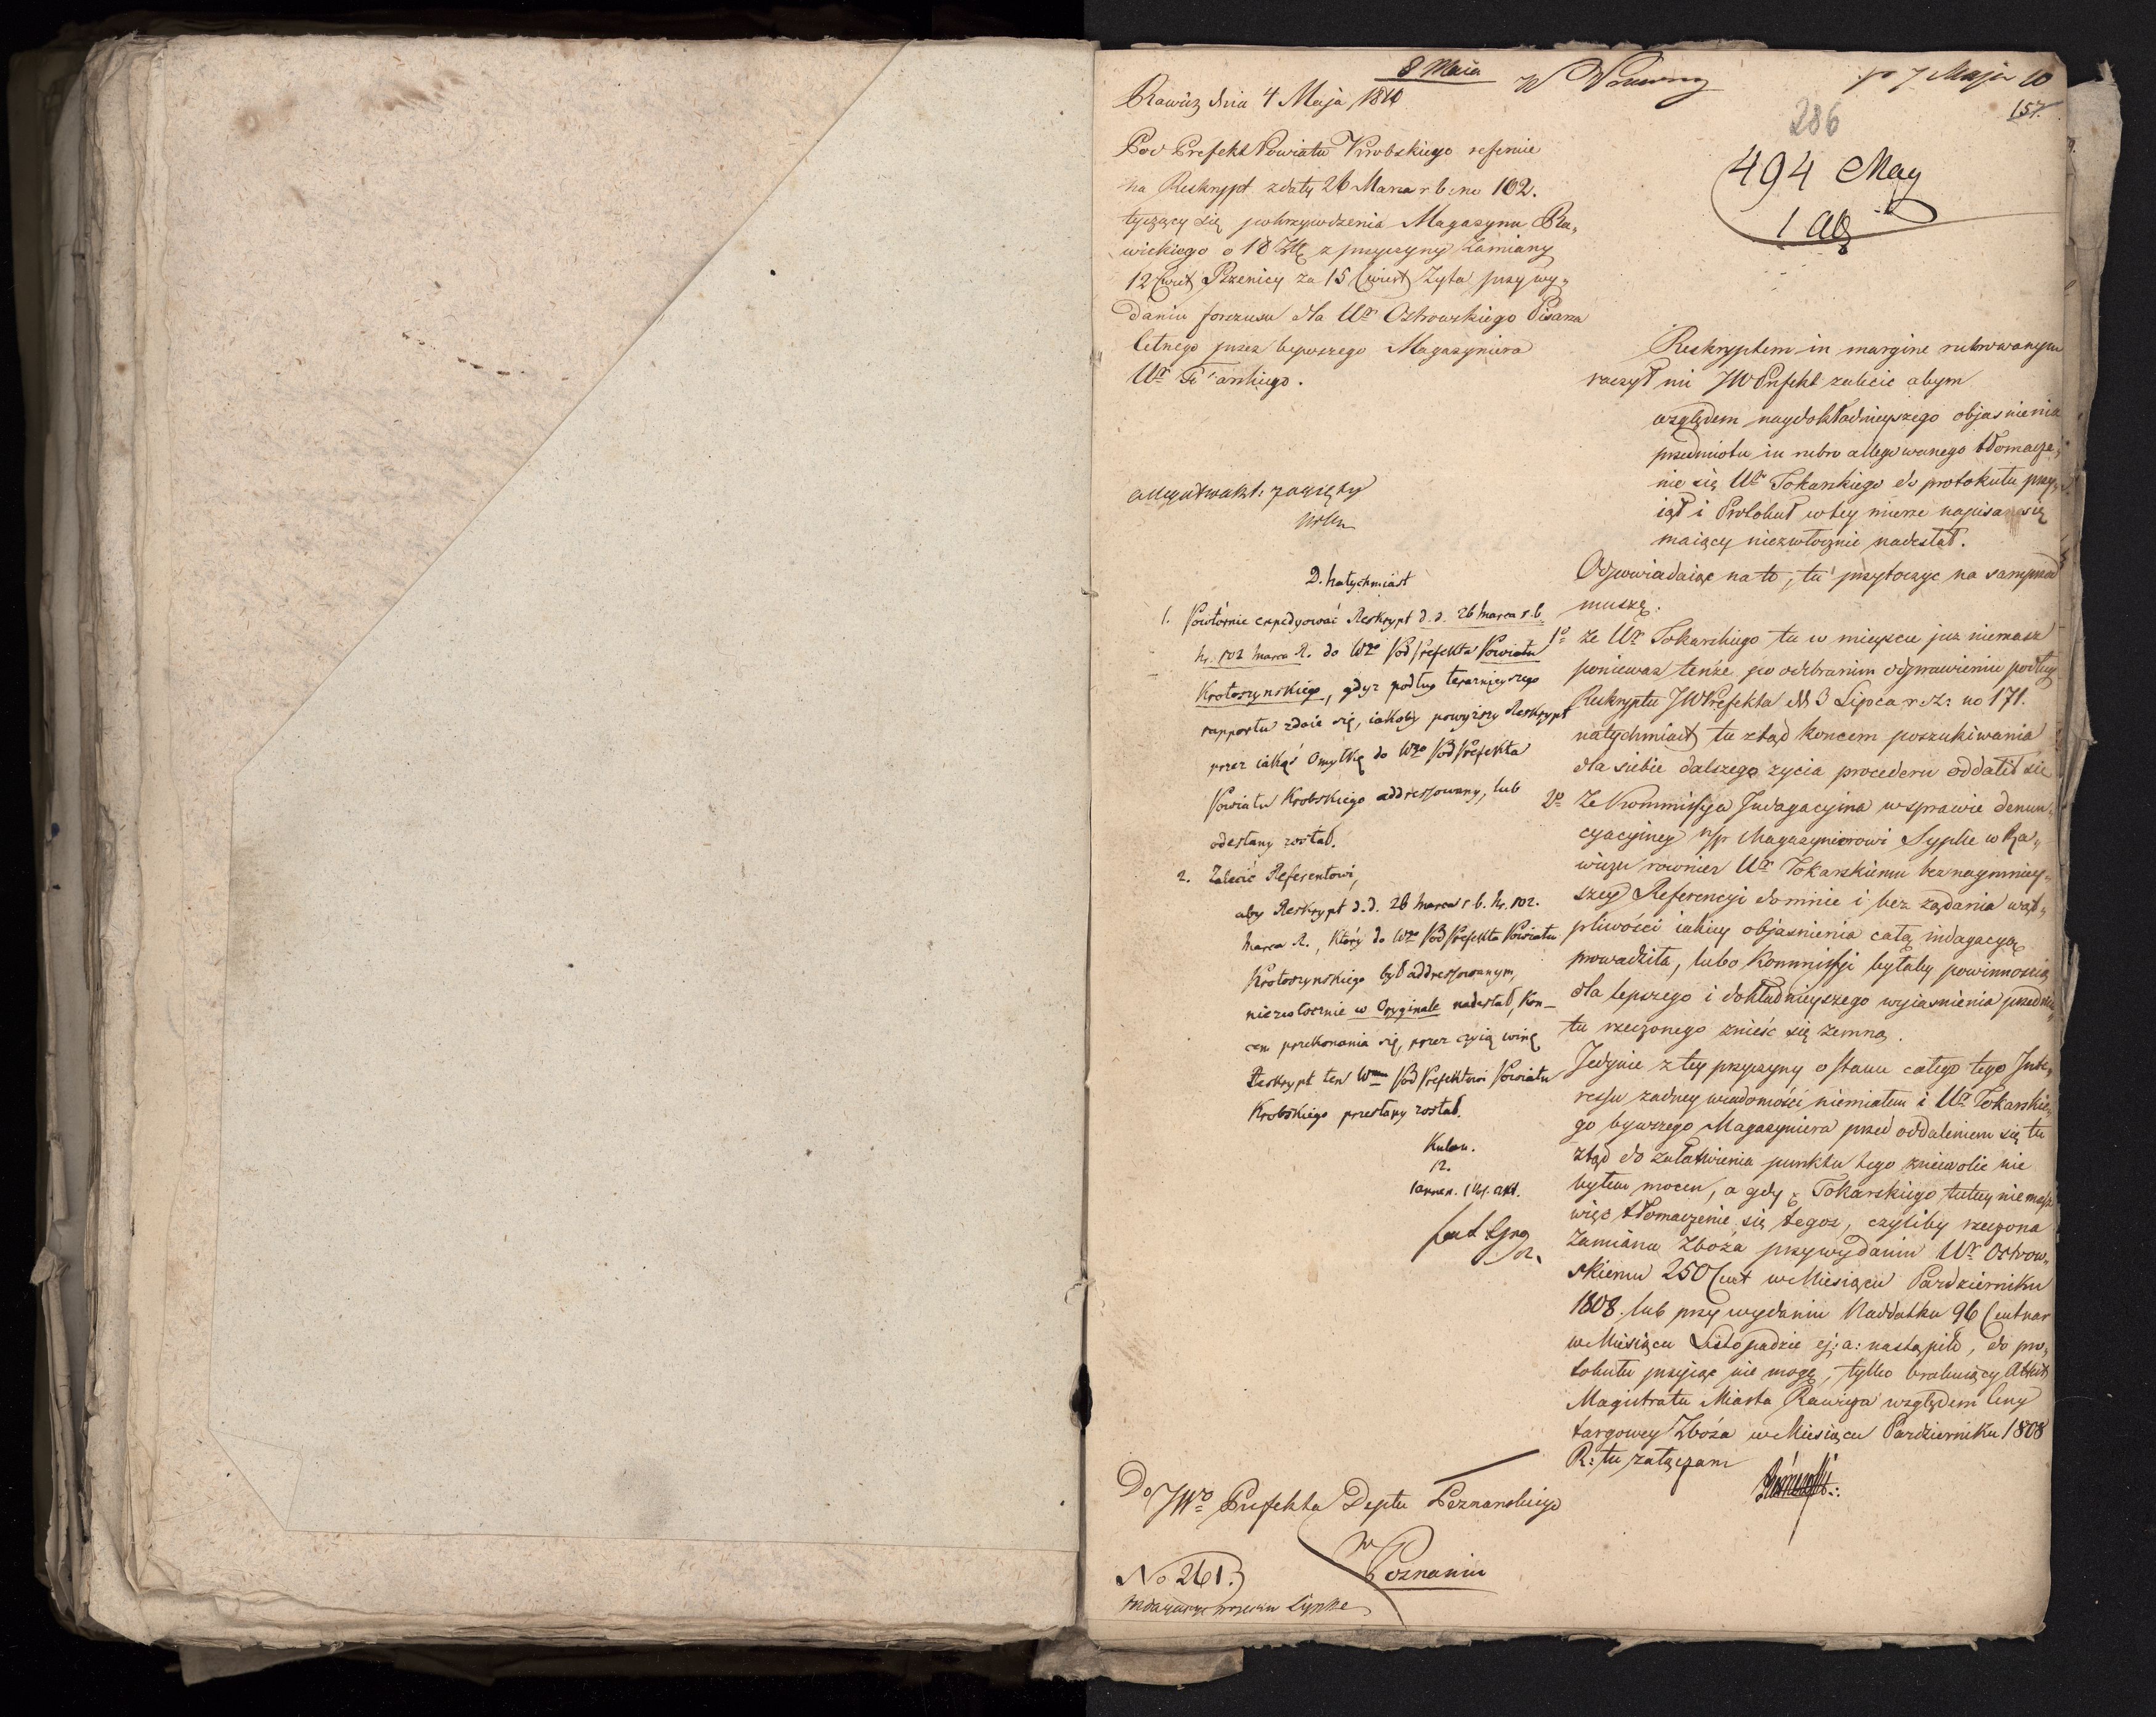 8 Maia
pr 7 Maja 10
157.
286
494 Mag
1 Abs
Rawicz dnia 4 Maja 1810
Pod Prefekt Powiatu Krobskiego referuie
na Reskrypt z daty 26 Marca r b: no 102.
tyczący się pokrzywdzenia Magazynu Ra„
wickiego o 18 Złł z przyczyny Zamiany
12 Cwiet Pszenicy za 15 Cwiert Zyta przy wy„
daniu forszusu dla Ur Ostrowskiego Pisarza
letnego przez bywszego Magazyniera
Ur Tokarskiego.
Reskryptem in margine rubrowanym
raczył mi JW Prefekt zalecic abym
względem naydokładnieyszego objasnienia
przedmiotu in rubro allegowanego tłomacze„
nie się Ur Tokarskiego do protokułu przy„
iął i Protokuł w tey mierze napisać się
maiący niezwłocznie nadesłał.
Odpowiadaiąc na to, tu przytoczyc na samprzod
muszę:
1o ze Ur Tokarskiego tu w mieyscu juz niemasz
poniewaz tenze po odebranim odprawieniu podług
Reskryptu JW Prefekta dd 3 Lipca r. z: no 171.
natychmiast tu ztąd koncem poszukiwania
dla siebie dalszego zycia procederu oddalił się
2o Ze Kommissyja Indagacyjna w sprawie denun„
cyacyjney n/p Magazynierowi Sypke w Ra„
wiczu rownież Ur Tokarskiemu bez naymniey„
szey Referencyi do mnie i bez ządania wąt„
pliwości iakiey objasnienia całą indagacyą
prowadziła, lubo Kommissyi byłaby powinnością
dla lepszego i dokładnieyszego wyjasnienia przedmio„
tu rzeczonego znieść się zemną.
Jedynie z tey przyczyny o stanu całego tego Inte„
ressu zadney wiadomości niemiałem i Ur Tokarskie„
go bywszego Magazyniera przed oddaleniem się tu
ztąd do załatwienia punktu tego zniewolic nie
byłem mocen, a gdy Tokarskiego tutey nie masz
więc tłomaczenie się tegoz, czyliby rzeczona
Zamiana Zboża przy wydaniu Ur Ostrow„
skiemu 250 Cent w Miesiącu Pazdzierniku
1808. lub przy wydaniu Naddatku 96 Centnar
w Miesiącu Listopadzie ej: a: nastąpiło, do pro„
tokułu przyjąc nie mogę, tylko brakuiący Attest
Magistratu Miasta Rawicza względem Ceny
targowey Zboża w Miesiącu Pazdzierniku 1808
R: tu załączam
D. natychmiast
1. Powtórnie expedyować Reskrypt d. d. 26 Marca r. b.
Nr. 102 Marca R. do Wgo Pod Prefekta Powiatu
Krotoszynskiego, gdyz podług teraznieyszego
rapportu zdaie się, iakoby powyższy Reskrypt
przez iakąś Omyłkę do Wgo Pod Prefekta
Powiatu Krobskiego addressowany, lub
odesłany został.
2. Zalecić Referentowi,
aby Reskrypt d. d. 26 Marca r. b. Nr. 102.
Marca R., Który do Wgo Pod Prefekta Powiatu
Krotoszynskiego był addressowanym,
niezwłocznie w Oryginale nadesłał, Kon–
cem przekonania się, przez czyią winę
Reskrypt ten Wmu Pod Prefektowi Powiatu
Krobskiego przesłany został.
12.
Do JWo Prefekta Deptu Poznanskiego
w
Poznaniu
No 261.